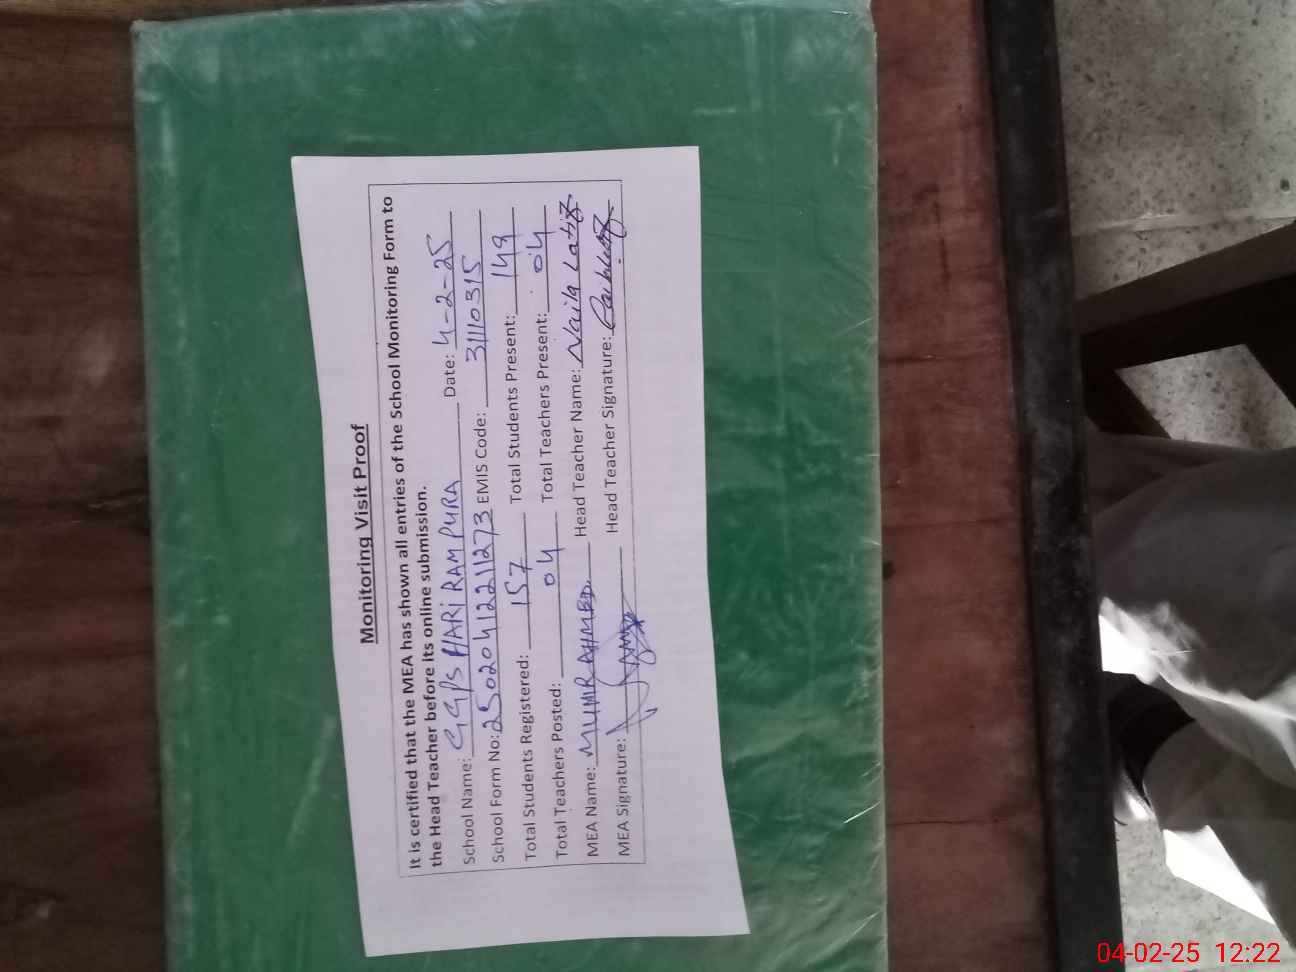 Monitoring Visit Proof
It is certified that the MEA has shown all entries of the School Monitoring Form to
the Head Teacher before its online submission.
School Name: GGPS HARi RAMPURA Date: 4-2-25
School Form No: 250204122211273 EMIS Code: 31110315
Total Students Registered: 157 Total Students Present: 149
Total Teachers Posted: 04 Total Teachers Present: 04
MEA Name: MUNIR AHMED. Head Teacher Name: Naila Latif
MEA Signature: Head Teacher Signature:
04-02-25 12:22